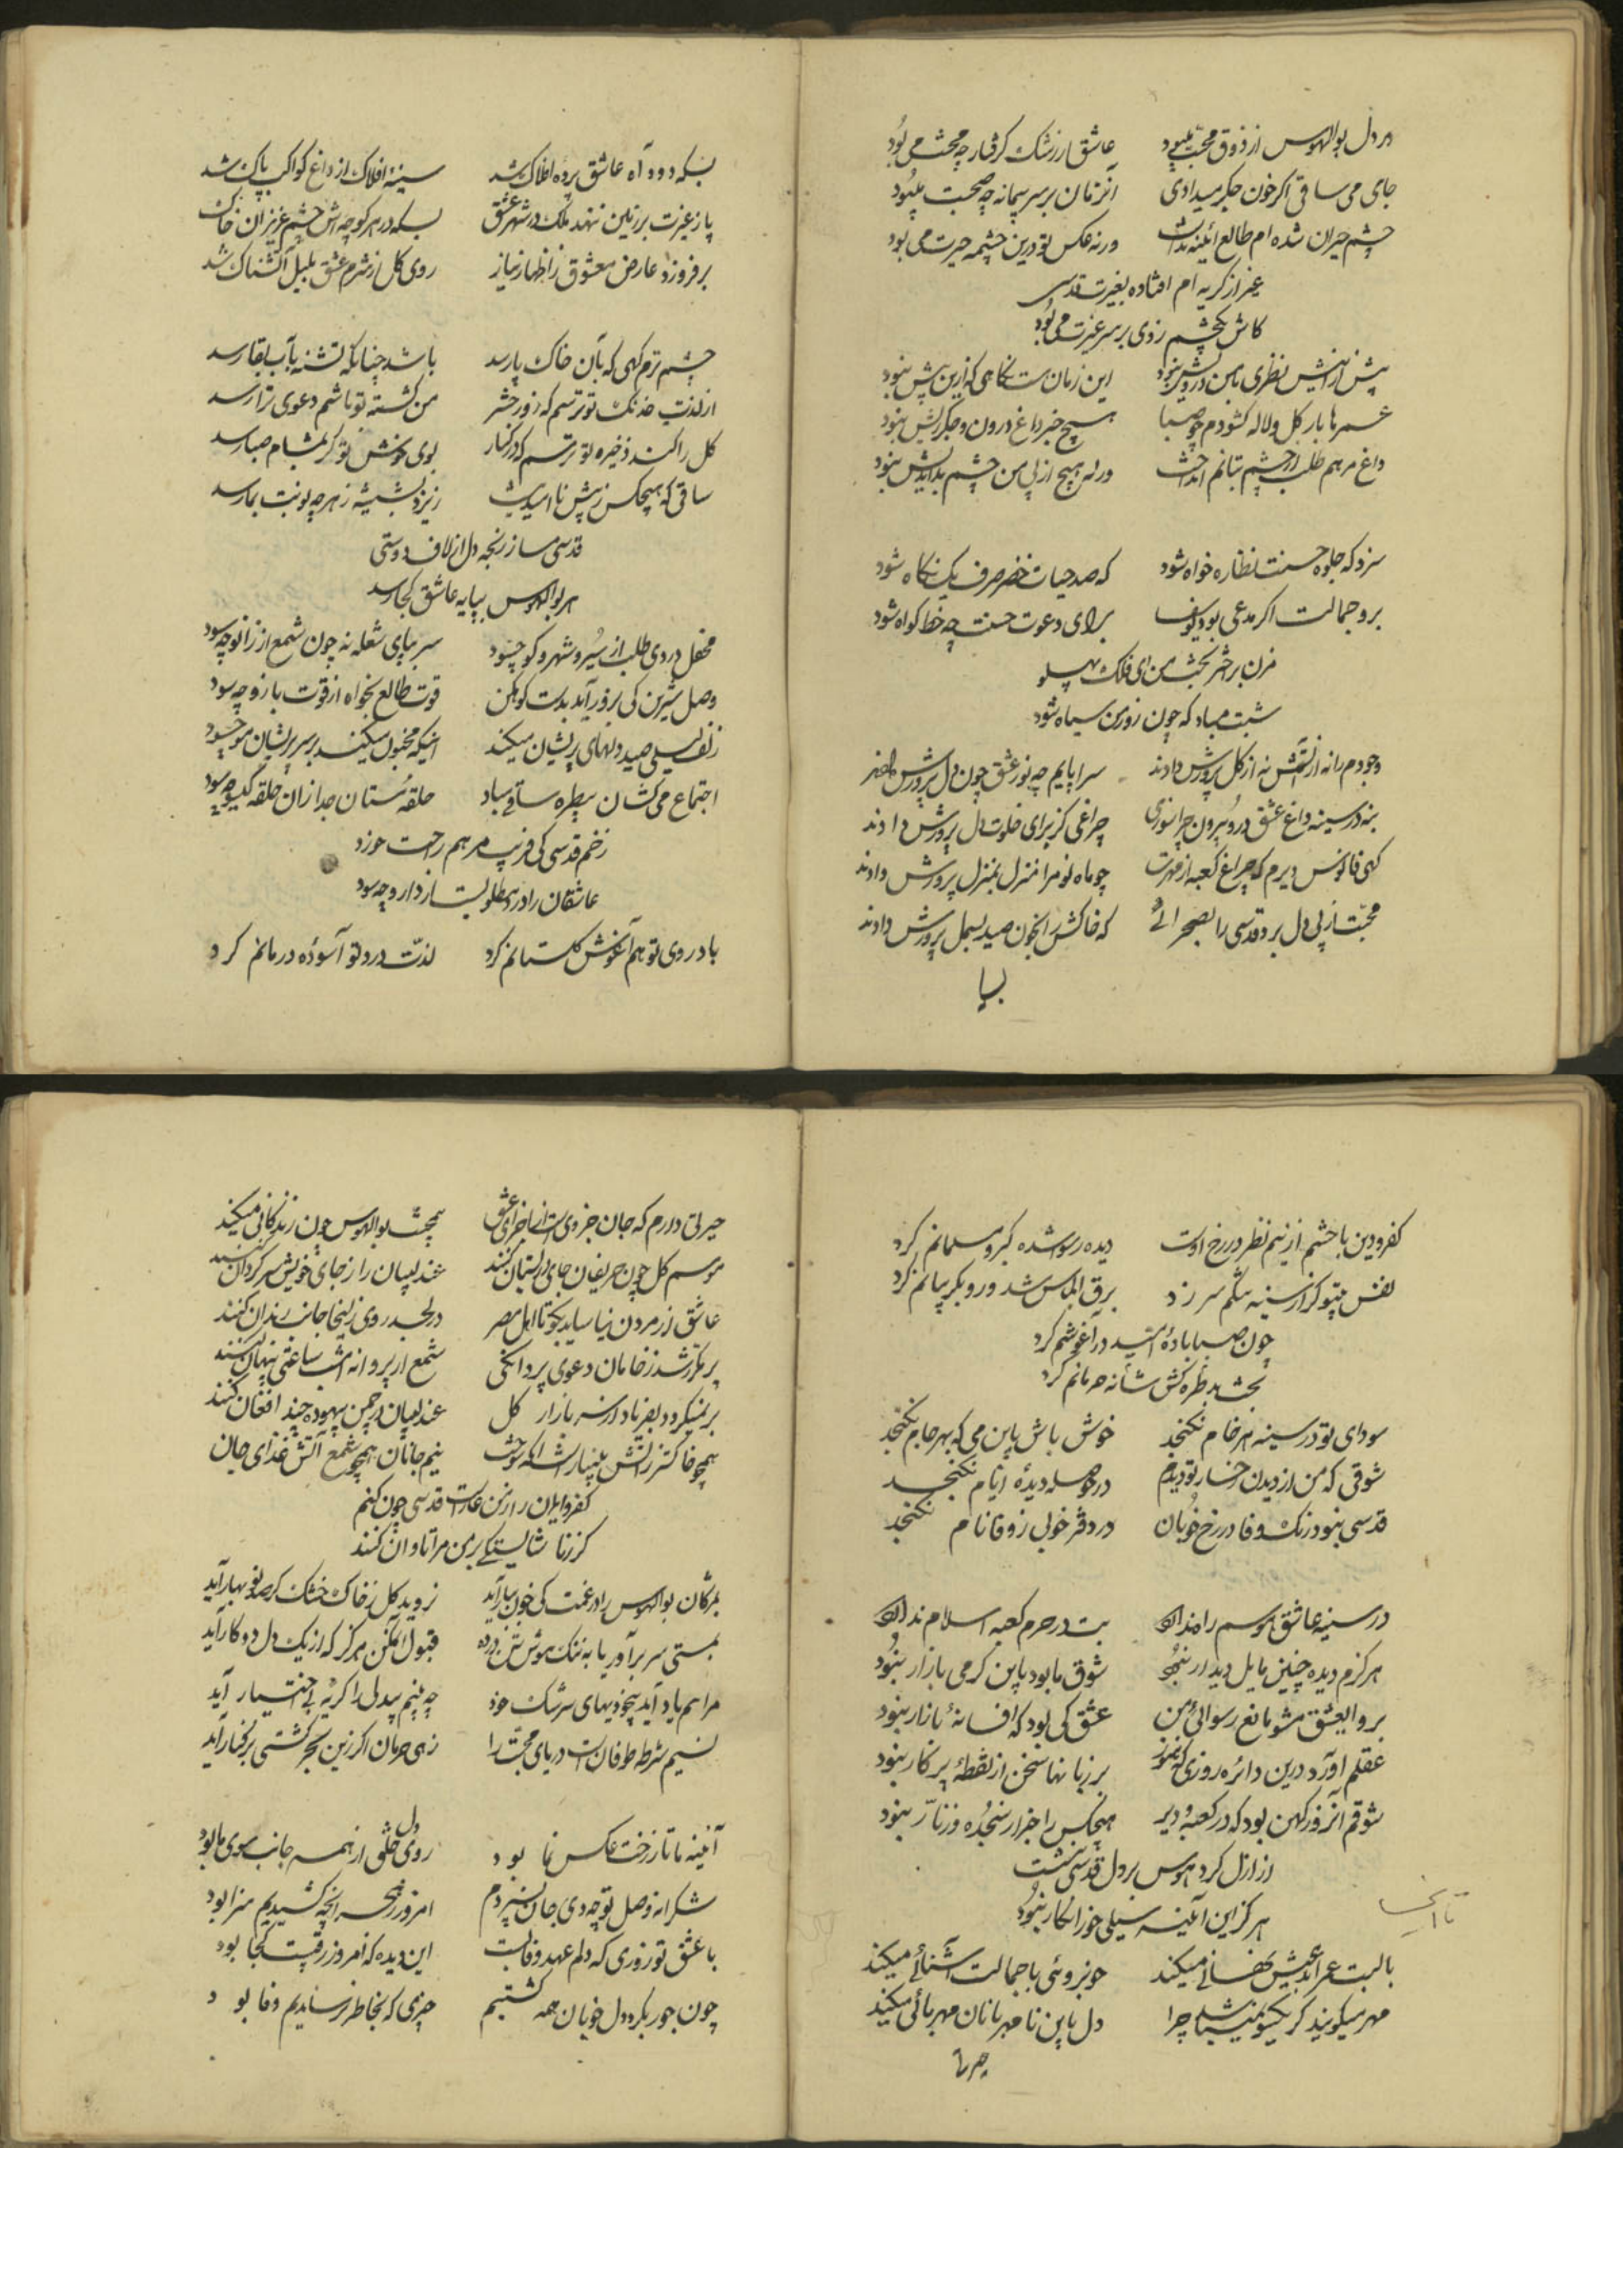 در دل بوالهوس از ذوق محبت میبود عاشق از رشک گرفتار چه محنت می بود
جای می ساقی اگر خون جگر میدادی آنزمان بر سر پیمانه چه صحبت میبود
چشم حیران شده ام طالع آئینه نداشت ورنه عکس تو درین چشمه حیرت می بود
غیر از گریه ام افتاده بغیرت قدسی
کاش یکچشم زدی بر سر غیرت می بود
پیش ازینش نظری با من درویش نبود این زمان هست نگاهی که ازین پیش نبود
عمرها بار گل و لاله گشودم چو صبا هیچ جز داغ درون و جگر ریش نبود
داغ مرهم طلب از چشم بتانم انداخت ورنه هیچ از پی من چشم بداندیش نبود
سزد که جلوه حسنت نظاره خواه شود که صد حیات خضر صرف یک نگاه شود
برو جمالت اگر مدعی بود یوسف برای دعوت حسنت چه خط گواه شود
مزن بر اختر بخت من ای فلک پهلو
شبت مباد که چون روز من سیاه شود
وجودم را نه از آتش نه از گل پرورش دادند سراپایم چه نور عشق چون دل پرورش دادند
بنه در سینه داغ عشق در بیرون چرا سوزی چراغی کز برای خلوت دل پرورش دادند
گهی فانوس دیرم گه چراغ کعبه از مهرت چو ماه نو مرا منزل بمنزل پرورش دادند
محبت از پی دل برد قدسی را بصحرائی که خاکش را بخون صید بسمل پرورش دادند
بسکه دود آه عاشق پرده افلاک شد سینه افلاک از داغ کواکب پاک شد
پا ز غیرت بر زمین ننهد ملک در شهر عشق بسکه در هر کوچه اش چشم عزیزان خاک شد
برفروزد عارض معشوق ز اظهار نیاز روی گل از شرم عشق بلبل آتشناک شد
چشم ترم گهی که بآن خاک پا رسد باشد چنانکه تشنه بآب بقا رسد
از لذت خدنک تو ترسم که روز حشر من کشته تو باشم دعوی ترا رسد
گل را کند ذخیره تو ترسم که در کنار بوی خوش تو گر بمشام صبا رسد
ساقی که هیچکس ز پیش ناامید نیست ریزد بشیشه زهر چه نوبت بما رسد
قدسی مساز رنجه دل از لاف دوستی
هر بوالهوس بپایه عاشق کجا رسد
محفل دردی طلب از سیر و شهر و کو چسود سر بپای شعله نه چون شمع از زانو چه سود
وصل شیرین کی بزور آید بدست کوهکن قوت طالع بخواه از قوت بازو چه سود
زلف لیلی صید دلهای پریشان میکند اینکه مجنون میکند بر سر پریشان مو چسود
اجتماع می کشان بیطره ساقی مباد حلقه مستان جدا زان حلقه گیسو چه سود
زخم قدسی کی فریب مرهم راحت خورد
عاشقان را درد مطلوبست از دارو چه سود
یاد روی تو هم آغوش گلستانم کرد لذت درد تو آسوده ز درمانم کرد
کفر و دین با چشم از نیم نظر در رخ اوست دیده رسوا شده گبر و مسلمانم کرد
نفس بیتو کز از سینه تنگم سر زد برق الماس شد و رو بگریبانم کرد
چون صبا باده امید در آغوشم کرد
بخت بد طره کش شانه حرمانم کرد
سودای تو در سینه هر خام نگنجد خوش باش باین می که بهر جام نگنجد
شوقی که من از دیدن رخسار تو دیدم در حوصله دیده ایام نگنجد
قدسی نبود رنگ وفا در رخ خوبان در دفتر خوبی ز وفا نام نگنجد
در سینه عاشق هوسم راه نداده بت در حرم کعبه اسلام نداده
هرگزم دیده چنین مایل دیدار نبود شوق ما بود باین گرمی بازار نبود
برو ایعشق مشو مانع رسوائی من عشق کی بود که افسانه بازار نبود
عقلم آورد درین دائره روزی که هنوز بر زبانها سخن از نقطه پرگار نبود
شوقم آنروز کهن بود که در کعبه و دیر هیچکس را خبر از سبحه و زنار نبود
از ازل کرد هوس بر دل قدسی نشست
هرگز این آئینه سیلی خور زنگار نبود
با لبت عمر ابد عیش نهانی میکند خوبروئی با جمالت آشنائی میکند
مهر میگویند کز یکسو نمیباشد چرا دل باین نامهربانان مهربانی میکند
حیرتی دارم که جان جزوی است از اجزای عشق بیمحبت بوالهوس چون زندگانی میکند
موسم گل چون حریفان جای در بستان کنند عندلیبان را ز جای خویش سرگردان کنند
عاشق از مردن نیاساید بگو تا اهل مصر در لحد روی زلیخا جانب زندان کنند
پر مکرر شد ز خامان دعوی پروانگی شمع از پروانه امشب ساعتی پنهان کنند
بر نمیگردد بفریاد از سر بازار گل عندلیبان در چمن بیهوده چند افغان کنند
همچو خاکستر ز آتش بی نیاز است آنکه سوخت نیم جانان همچو شمع آتش غذای جان
کفر و ایمان را ز من عارست قدسی چون کنم
کز ناشایستگی بر من مرا تاوان کنند
بمژگان بوالهوس را در غمت کی خون ببار آید نروید گل ز خاک خشک گر صد نوبهار آید
بمستی سر برآور یا به ننگ هوش تن در ده قبول این مکن هرگز که از یک دل دو کار آید
مرا هم یاد آید بیخودیهای سرشک خود چه بینم بیدلی را گریه بی اختیار آید
نسیم شرطه طوفانست دریای محبت را زهی حرمان اگر زین بحر کشتی بر کنار آید
آئینه ما تا ز رخت عکس نما بود روی دل خلقی از همه جانب سوی ما بود
شکرانه وصل تو چه دی جان نسپردم امروز ز هجر آنچه کشیدیم سزا بود
با عشق تو روزی که دلم عهد وفا بست این دیده که امروز رقیبست کجا بود
چون جور بگرد دل خوبان همه گشتیم چیزی که بخاطر نرساندیم وفا بود